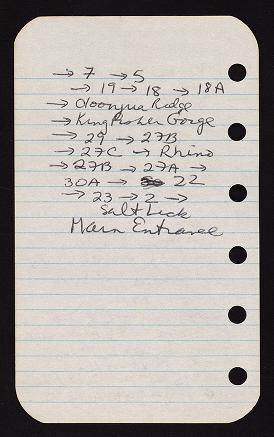 → 7 → 5
→ 19 → 18 → 18A
→ Ololonyua Ridge
→ Kingfisher Gorge
→ 29 → 27B
→ 27C → Rhino
→ 27B → 27A →
30A → 22
→ 23 → 2 →
Salt Lick
Main Entrance